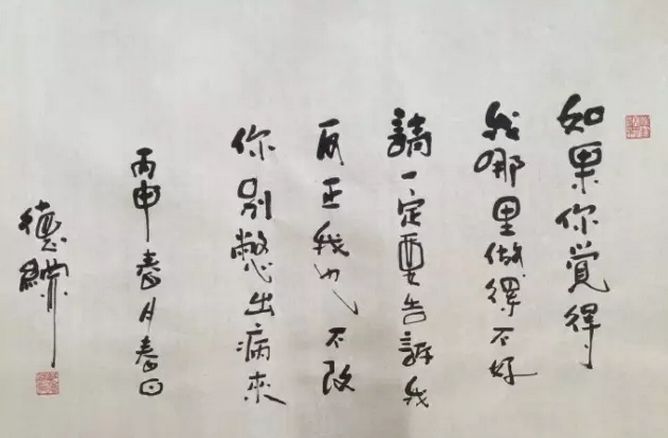 如果你覺得
我哪里做得不好
請一定要告訴我
反正我也不改
你别憋出病來
丙申春月春日
德